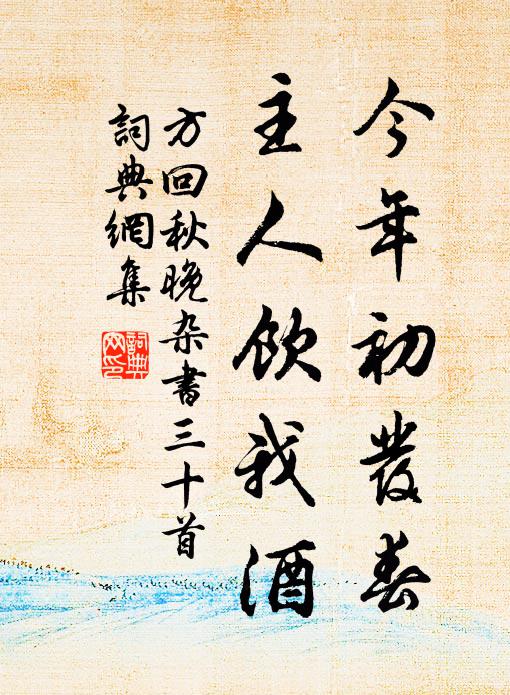 今年初發春
主人飲我酒
方回秋晚杂書三十首
詞典網集
詞典
网印